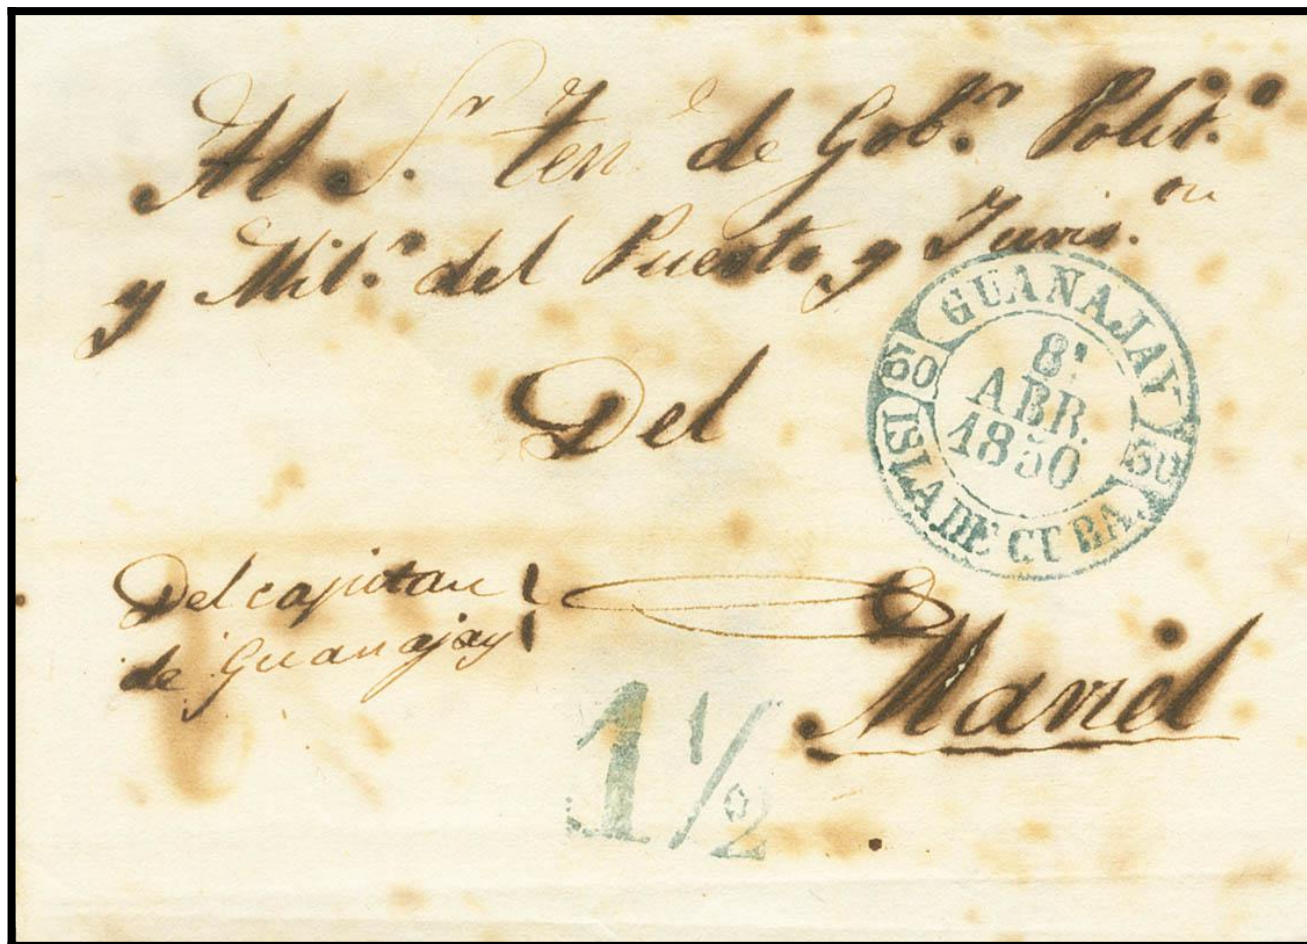 Al Sr. Ten.e de Gob.r Polit.o
y Mil.r del Puerto y Juris.on
Del
GUANAJAY
60 60
8.
ABR.
1850
ISLA DE CUBA.
Del capitan
de Guanajay
Mariel
1 1/2